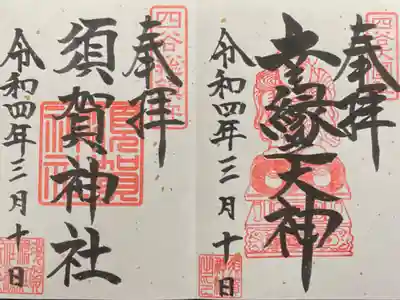 奉拝
縁天神
令和四年三月十日
四谷総鎮守
奉拝
須賀神社
令和四年三月十日